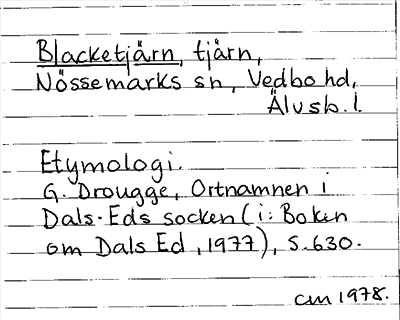 Blacketjärn, tjärn,
Nössemarks sn, Vedbo hd,
Älvsb. l.
Etymologi.
G. Drougge, Ortnamnen i
Dals-Eds socken (i: Boken
om Dals Ed, 1977), s. 630.
cm 1978.